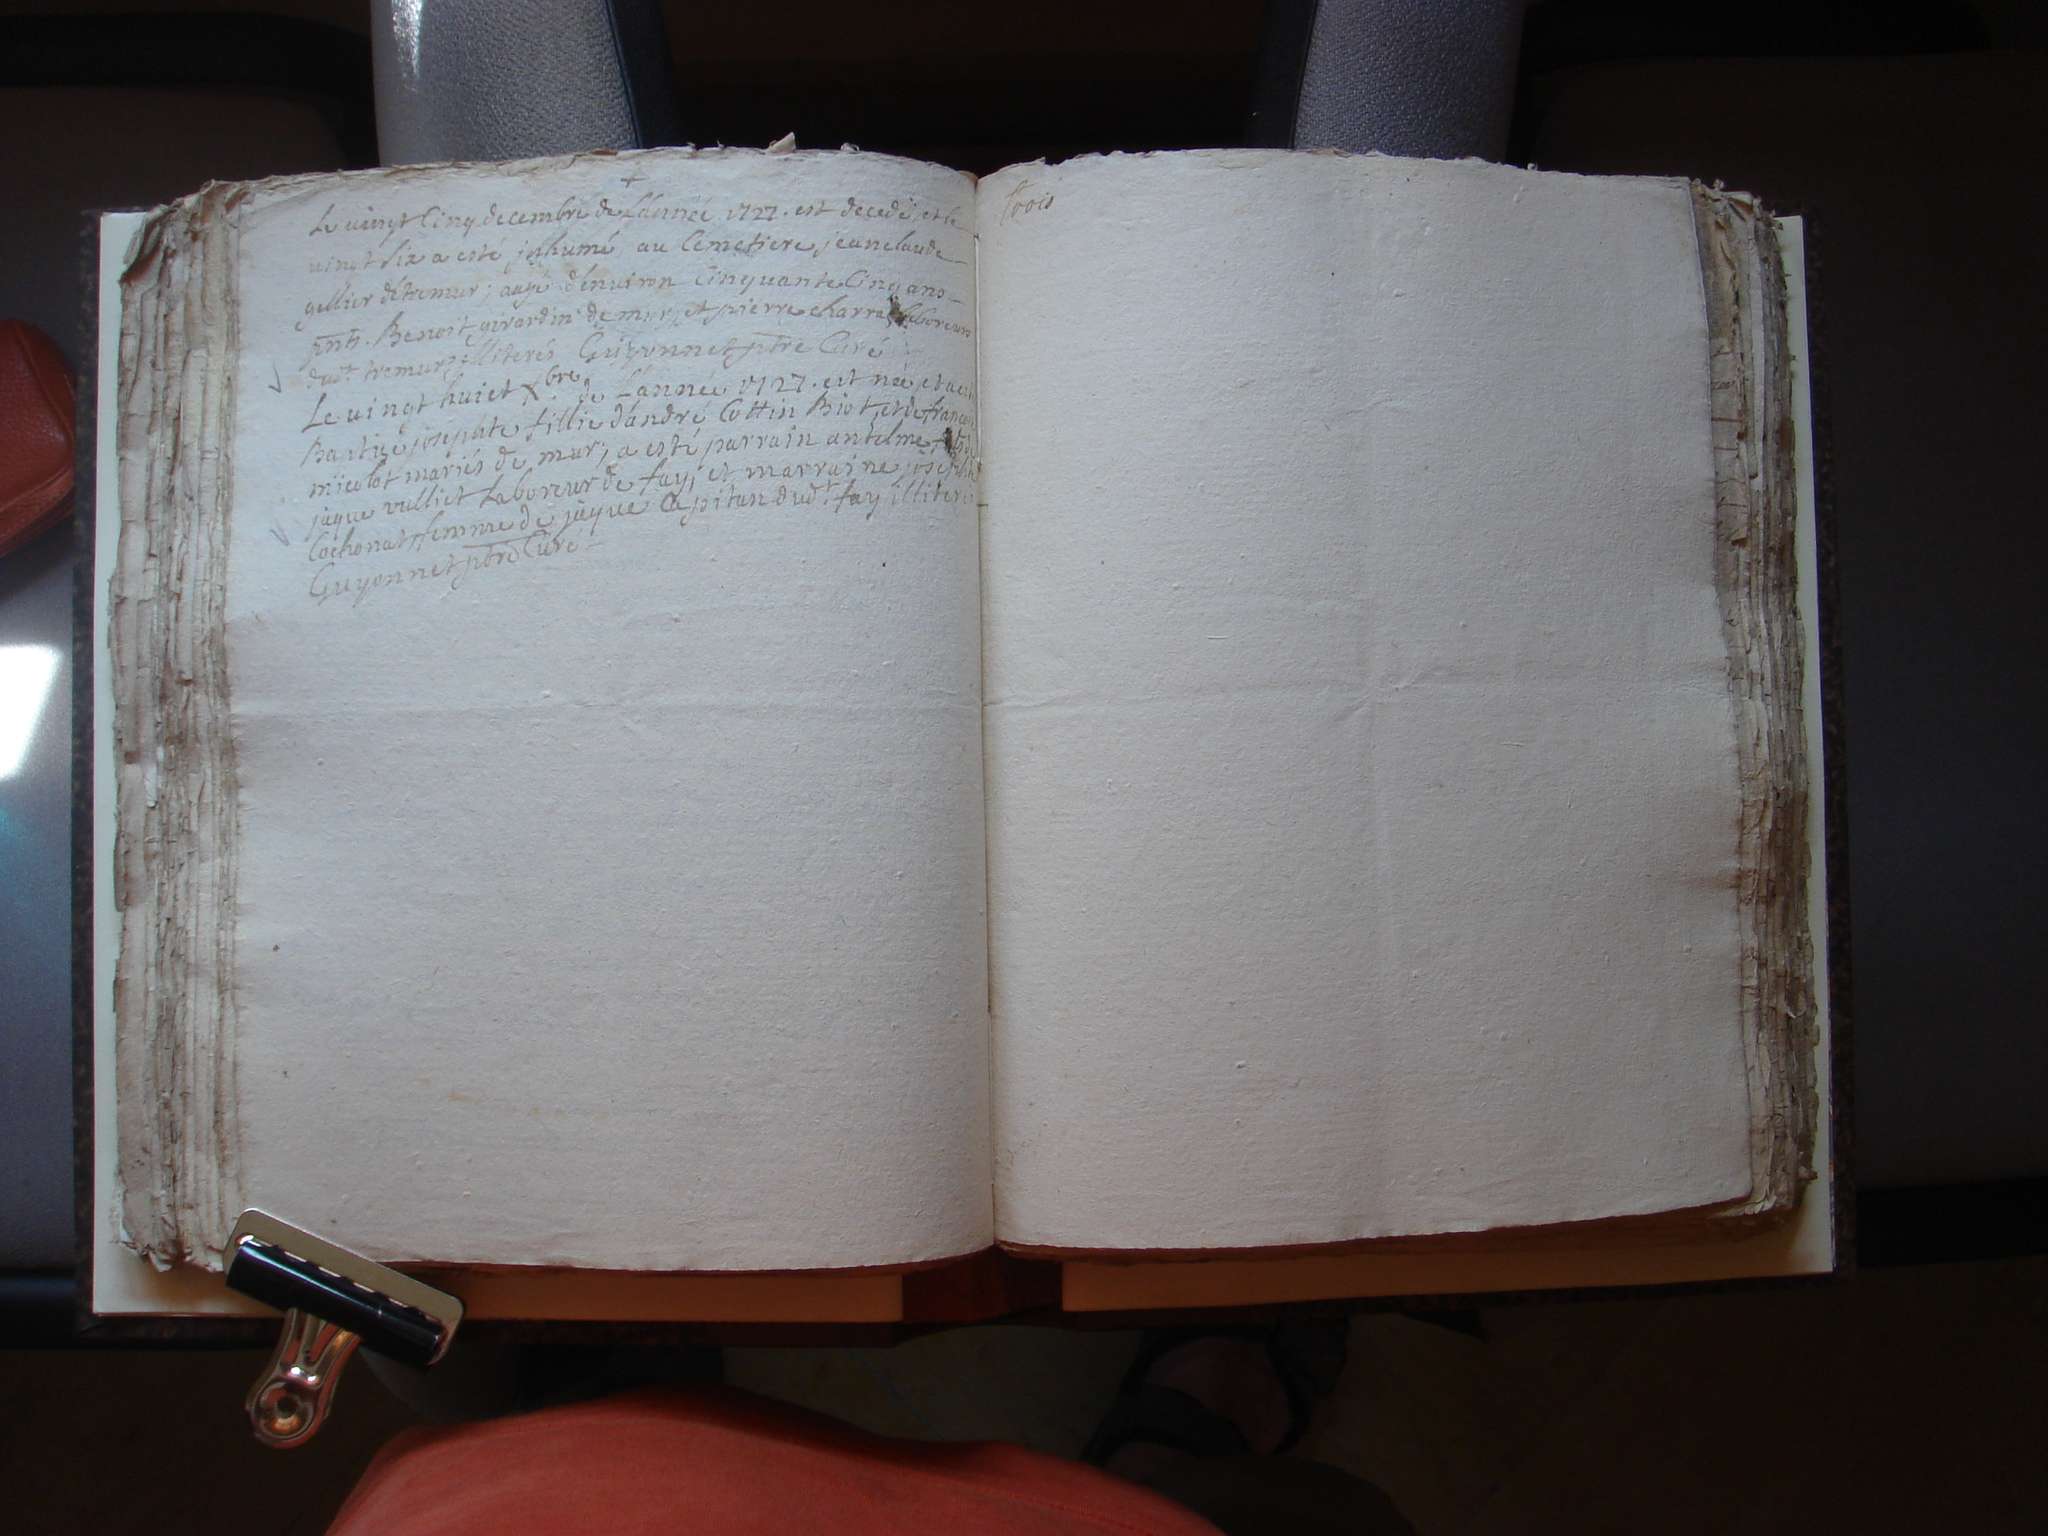 +
Le vingt Cinq decembre de L'année 1727. est decedé, et le
vingt six a esté inhumé au Cemetiere, jean claude
gellier de tremur; agé d'environ Cinquante Cinq ans
pnts. Benoit girardin de mur, et pierre charra laboreurs
dudt. tremur illiterés Guyonnet ptre Curé
Le vingt huict Xbre. de L'année 1727. est née, et a esté
Baptizé josephte fillie d'andré Cottin Biot, et de françoise
micolot mariés de mur; a esté parrain antelme
jaque vulliet Laboreur de fay, et marraine josephte
Cochonat femme de jaque Capitan dudt. fay illiterés
Guyonnet ptre Curé
trois